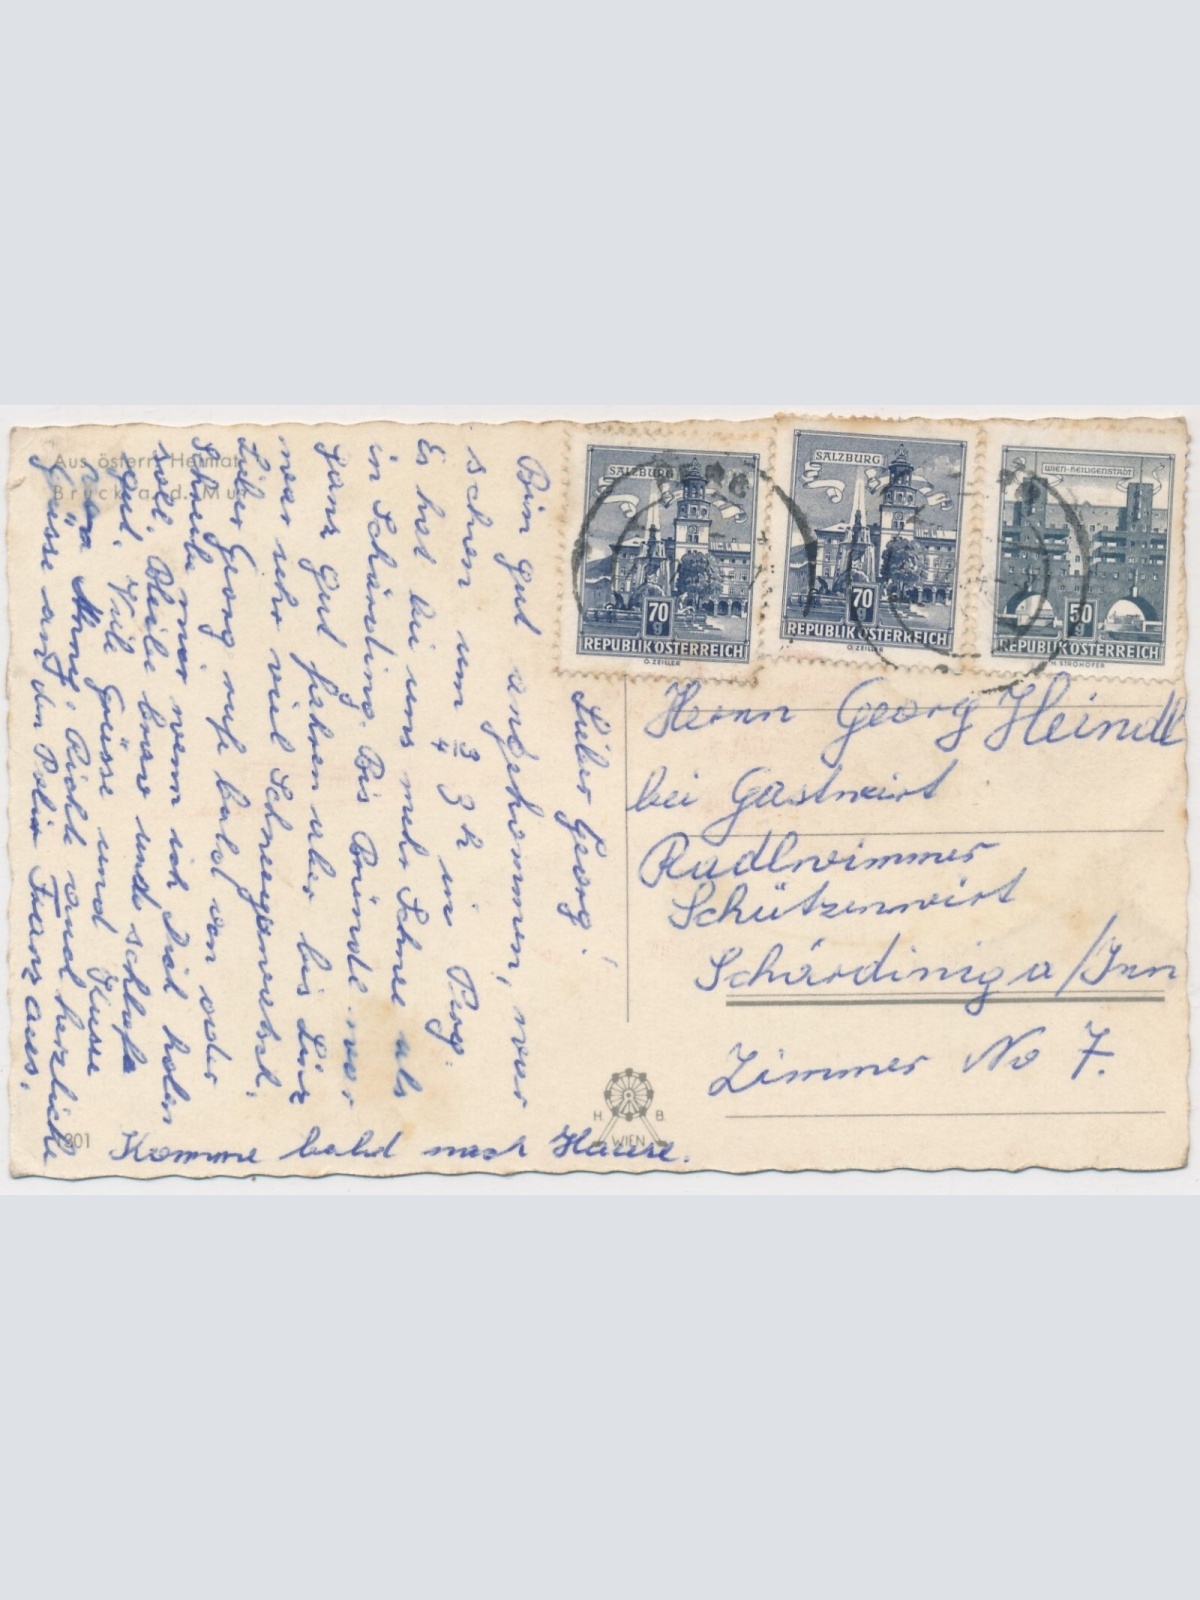 Aus österr. Heimat
Bruck a. d. Mur
Lieber Georg!
Bin gut angekommen, war
schon um 3/4 3 h in
Es hat bei uns mehr Schnee als
in Schärding. Bis Bründl war
ganz gut fahren aber bis Linz
war sehr viel Schneegemetsch.
Lieber Georg rufe bald an oder
Schreibe mir wenn ich Dich holen
soll. Bleibe brav und schlafe
gut. Viele Grüsse und Küsse
Richte auch herzliche
Grüsse an den Franz aus.
Komme bald nach Hause.
301
SALZBURG
70
g
REPUBLIK ÖSTERREICH
O. ZEILLER
SALZBURG
70
g
REPUBLIK ÖSTERREICH
O. ZEILLER
WIEN-HEILIGENSTADT
50
g
REPUBLIK ÖSTERREICH
H. STROHOFER
Herrn Georg Heindl
bei Gastwirt
Radlwimmer
Schützenwirt
Schärding a/Inn
Zimmer No 7.
H. B.
WIEN